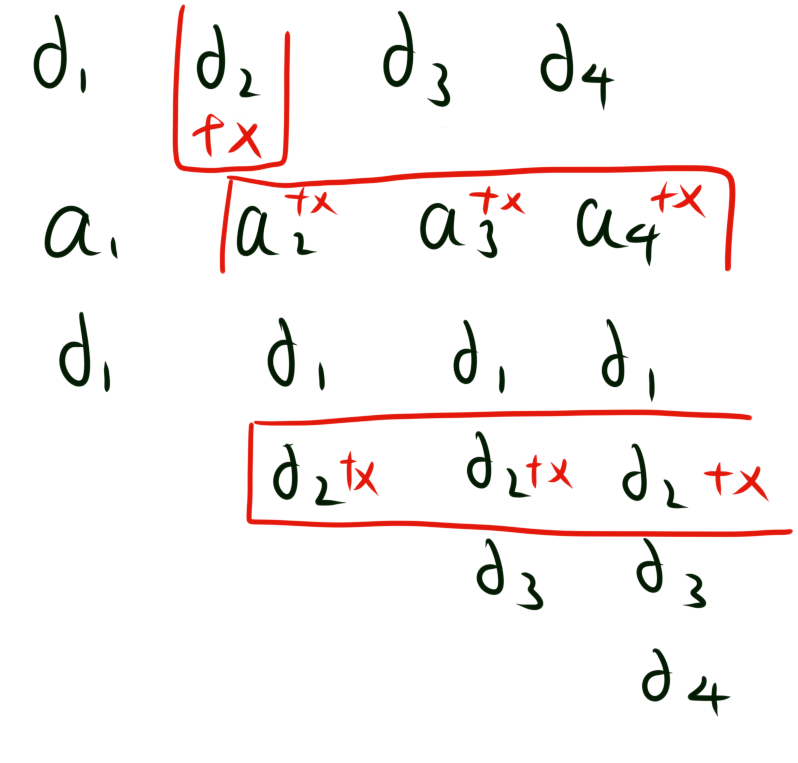 d₁ d₂ d₃ d₄
+x
a₁ a₂+x a₃+x a₄+x
d₁ d₁ d₁ d₁
d₂+x d₂+x d₂+x
d₃ d₃
d₄